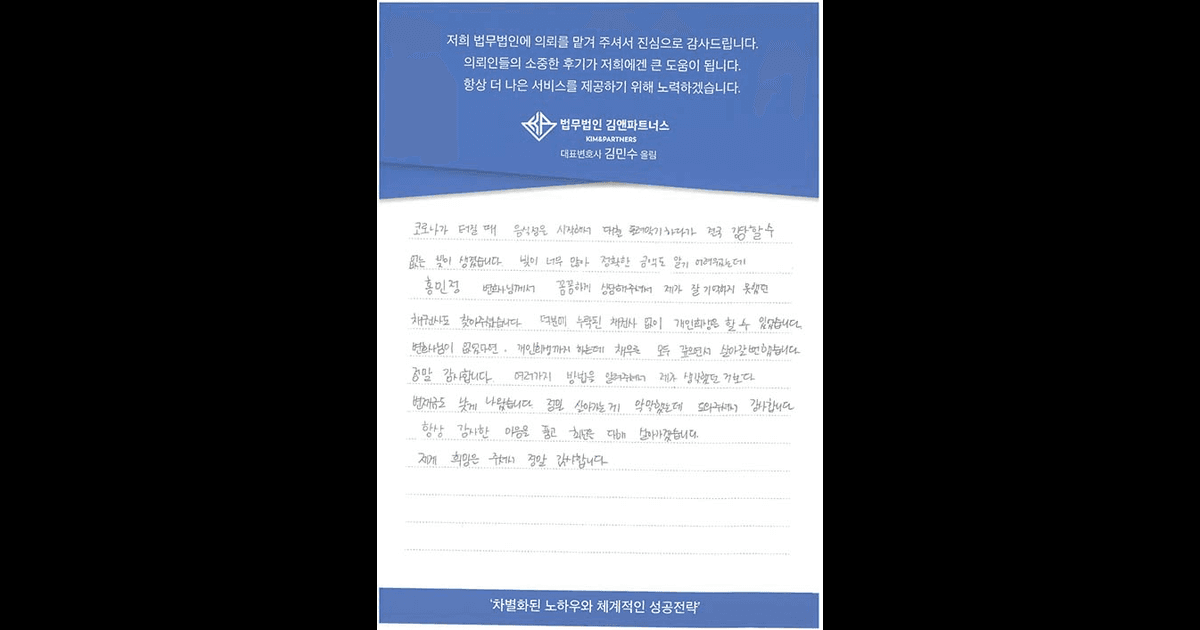 저희 법무법인에 의뢰를 맡겨 주셔서 진심으로 감사드립니다.
의뢰인들의 소중한 후기가 저희에겐 큰 도움이 됩니다.
항상 더 나은 서비스를 제공하기 위해 노력하겠습니다.
법무법인 김앤파트너스
KIM&PARTNERS
대표변호사 김민수 올림
코로나가 터질 때 음식점을 시작해서 대출 돌려막기하다가 결국 감당할 수
없는 빚이 생겼습니다. 빚이 너무 많아 정확한 금액도 알기 어려웠는데
홍민정 변호사님께서 꼼꼼하게 상담해주셔서 제가 잘 기억하지 못했던
채권사도 찾아주셨습니다. 덕분에 누락된 채권사 없이 개인회생을 할 수 있었습니다.
변호사님이 없었다면. 개인회생까지 하는데 채무를 모두 갚으면서 살아갈뻔했습니다.
정말 감사합니다. 여러가지 방법을 알려주셔서 제가 생각했던 것보다
변제금도 낮게 나왔습니다. 정말 살아가는게 막막했는데 도와주셔서 감사합니다
항상 감사한 마음을 품고 최선을 다해 살아가겠습니다.
제게 희망을 주셔서 정말 감사합니다.
‘차별화된 노하우와 체계적인 성공전략’